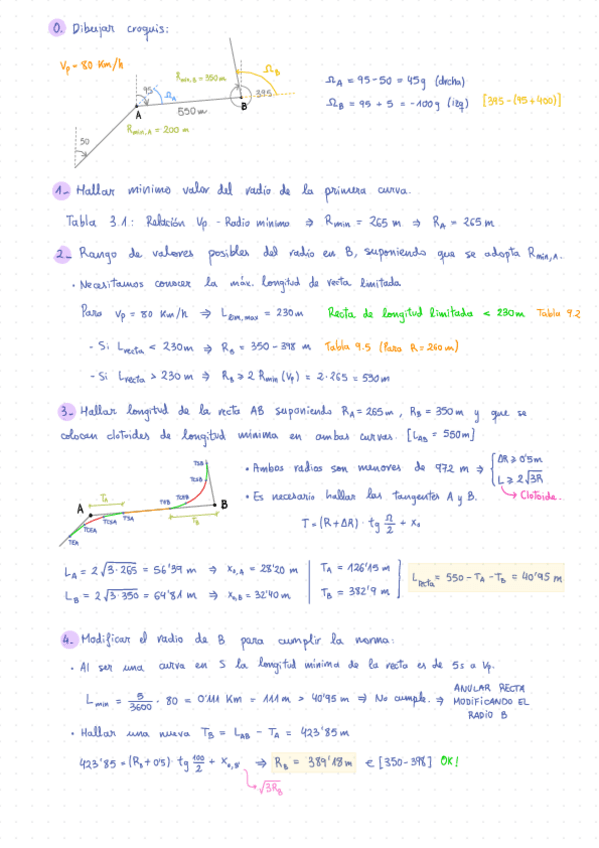 0. Dibujar croquis:
Vp = 80 Km/h
Rmin,B = 350m
ΩB
95
ΩA
395
A
B
550 m
Rmin,A = 200 m
50
ΩA = 95-50 = 45g (drcha)
ΩB = 95 + 5 = -100g (izq) [395-(95+400)]
1- Hallar mínimo valor del radio de la primera curva.
Tabla 3.1: Relación Vp - Radio mínimo ⇒ Rmin = 265 m ⇒ RA = 265 m
2- Rango de valores posibles del radio en B, suponiendo que se adopta Rmin,A.
• Necesitamos conocer la máx. longitud de recta limitada
Para Vp = 80 Km/h ⇒ Llim,max = 230m Recta de longitud limitada < 230m Tabla 9.2
- Si Lrecta < 230m ⇒ RB = 350 - 398 m Tabla 9.5 (Para R = 260 m)
- Si Lrecta > 230 m ⇒ RB ≥ 2 Rmin (Vp) = 2·265 = 530m
3- Hallar longitud de la recta AB suponiendo RA = 265m, RB = 350m y que se
colocan clotoides de longitud mínima en ambas curvas. [LAB = 550m]
• Ambos radios son menores de 972 m ⇒ { ΔR ≥ 0'5m
L ≥ 2√3R
Clotoide.
• Es necesario hallar las tangentes A y B.
T = (R+ΔR) · tg Ω/2 + x₀
A
TA
B
TB
LA = 2√3·265 = 56'39 m ⇒ x₀,A = 28'20 m TA = 126'15 m
LB = 2√3·350 = 64'81 m ⇒ x₀,B = 32'40 m TB = 382'9 m
Lrecta = 550 - TA - TB = 40'95 m
4. Modificar el radio de B para cumplir la norma:
• Al ser una curva en S la longitud mínima de la recta es de 5s a Vp.
Lmin = 5/3600 · 80 = 0'111 Km = 111 m > 40'95 m ⇒ No cumple. ⇒ ANULAR RECTA MODIFICANDO EL RADIO B
• Hallar una nueva TB = LAB - TA = 423'85 m
423'85 = (RB + 0'5) · tg 100/2 + x₀,B ⇒ RB = 389'18 m ∈ [350-398] OK!
√3RB